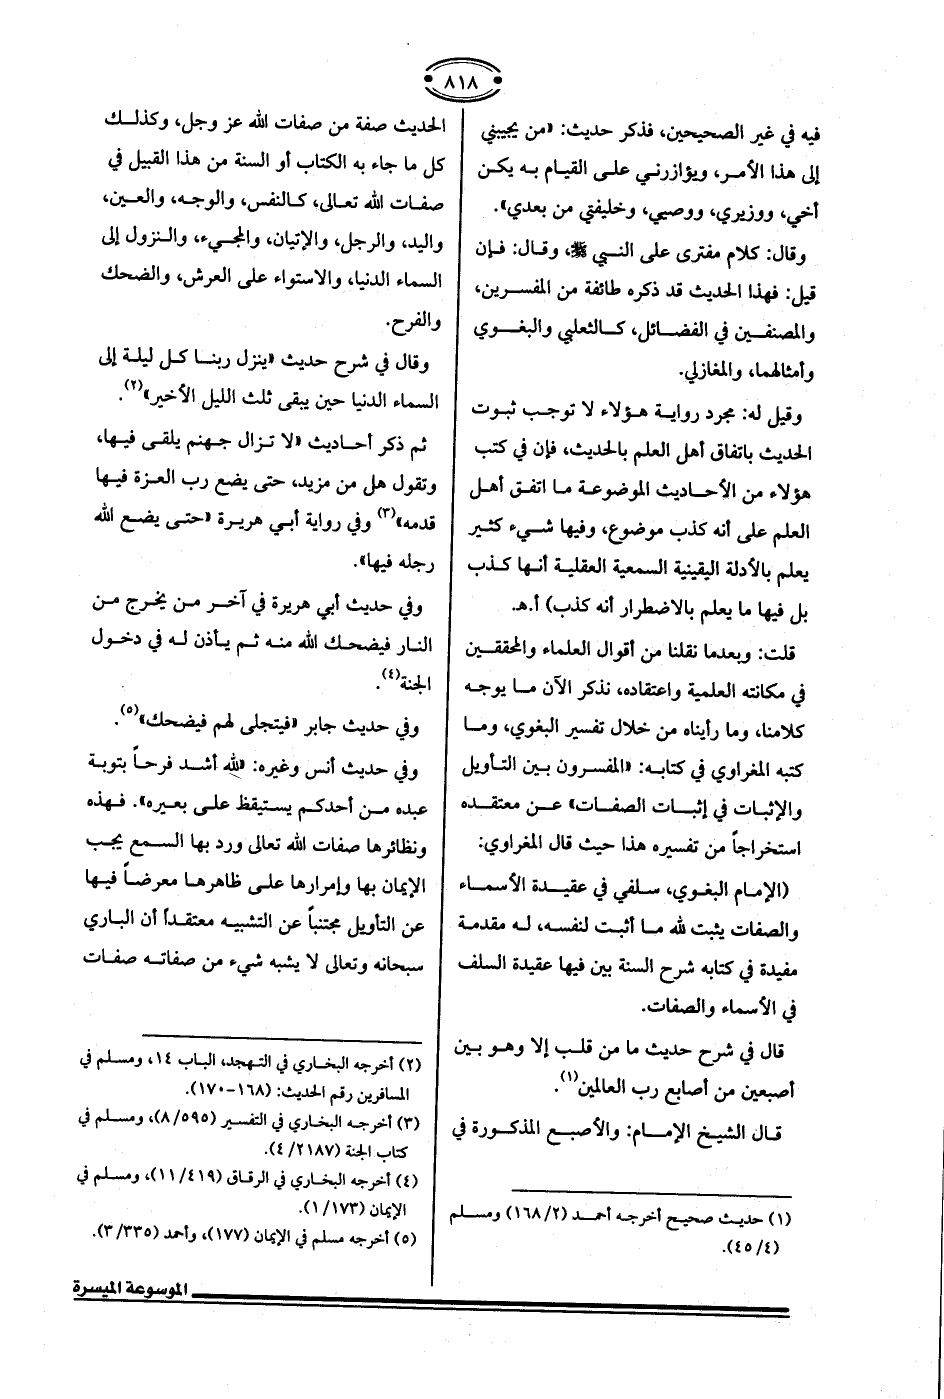 ٨١٨
فيه في غير الصحيحين، فذكر حديث: «من يجيبني
إلى هذا الأمر، ويؤازرني على القيام به يكن
أخي، ووزيري، ووصيي، وخليفتي من بعدي».
وقال: كلام مفترى على النبي ﷺ، وقال: فإن
قيل: فهذا الحديث قد ذكره طائفة من المفسرين،
والمصنفين في الفضائل، كالثعلبي والبغوي
وأمثالهما، والمغازلي.
وقيل له: مجرد رواية هؤلاء لا توجب ثبوت
الحديث باتفاق أهل العلم بالحديث، فإن في كتب
هؤلاء من الأحاديث الموضوعة ما اتفق أهل
العلم على أنه كذب موضوع، وفيها شيء كثير
يعلم بالأدلة اليقينية السمعية العقلية أنها كذب
بل فيها ما يعلم بالاضطرار أنه كذب) أ.هـ.
قلت: وبعدما نقلنا من أقوال العلماء والمحققين
في مكانته العلمية واعتقاده، نذكر الآن ما يوجه
كلامنا، وما رأيناه من خلال تفسير البغوي، وما
كتبه المغراوي في كتابه: «المفسرون بين التأويل
والإثبات في إثبات الصفات» عن معتقده
استخراجاً من تفسيره هذا حيث قال المغراوي:
(الإمام البغوي، سلفي في عقيدة الأسماء
والصفات يثبت لله ما أثبت لنفسه، له مقدمة
مفيدة في كتابه شرح السنة بين فيها عقيدة السلف
في الأسماء والصفات.
قال في شرح حديث ما من قلب إلا وهو بين
أصبعين من أصابع رب العالمين(١).
قال الشيخ الإمام: والأصبع المذكورة في
(١) حديث صحيح أخرجه أحمد (١٦٨/٢) ومسلم
(٤٥/٤).
الحديث صفة من صفات الله عز وجل، وكذلك
كل ما جاء به الكتاب أو السنة من هذا القبيل في
صفات الله تعالى، كالنفس، والوجه، والعين،
واليد، والرجل، والإتيان، والمجيء، والنزول إلى
السماء الدنيا، والاستواء على العرش، والضحك
والفرح.
وقال في شرح حديث «ينزل ربنا كل ليلة إلى
السماء الدنيا حين يبقى ثلث الليل الأخير»(٢).
ثم ذكر أحاديث «لا تزال جهنم يلقى فيها،
وتقول هل من مزيد، حتى يضع رب العزة فيها
قدمه»(٣) وفي رواية أبي هريرة «حتى يضع الله
رجله فيها».
وفي حديث أبي هريرة في آخر من يخرج من
النار فيضحك الله منه ثم يأذن له في دخول
الجنة(٤).
وفي حديث جابر «فيتجلى لهم فيضحك»(٥).
وفي حديث أنس وغيره: «لله أشد فرحاً بتوبة
عبده من أحدكم يستيقظ على بعيره». فهذه
ونظائرها صفات الله تعالى ورد بها السمع يجب
الإيمان بها وإمرارها على ظاهرها معرضاً فيها
عن التأويل مجتنباً عن التشبيه معتقداً أن الباري
سبحانه وتعالى لا يشبه شيء من صفاته صفات
(٢) أخرجه البخاري في التهجد، الباب ١٤، ومسلم في
المسافرين رقم الحديث: (١٦٨-١٧٠).
(٣) أخرجه البخاري في التفسير (٨/٥٩٥)، ومسلم في
كتاب الجنة (٤/٢١٨٧).
(٤) أخرجه البخاري في الرقاق (١١/٤١٩)، ومسلم في
الإيمان (١/١٧٣).
(٥) أخرجه مسلم في الإيمان (١٧٧)، وأحمد (٣/٣٣٥).
الموسوعة الميسرة